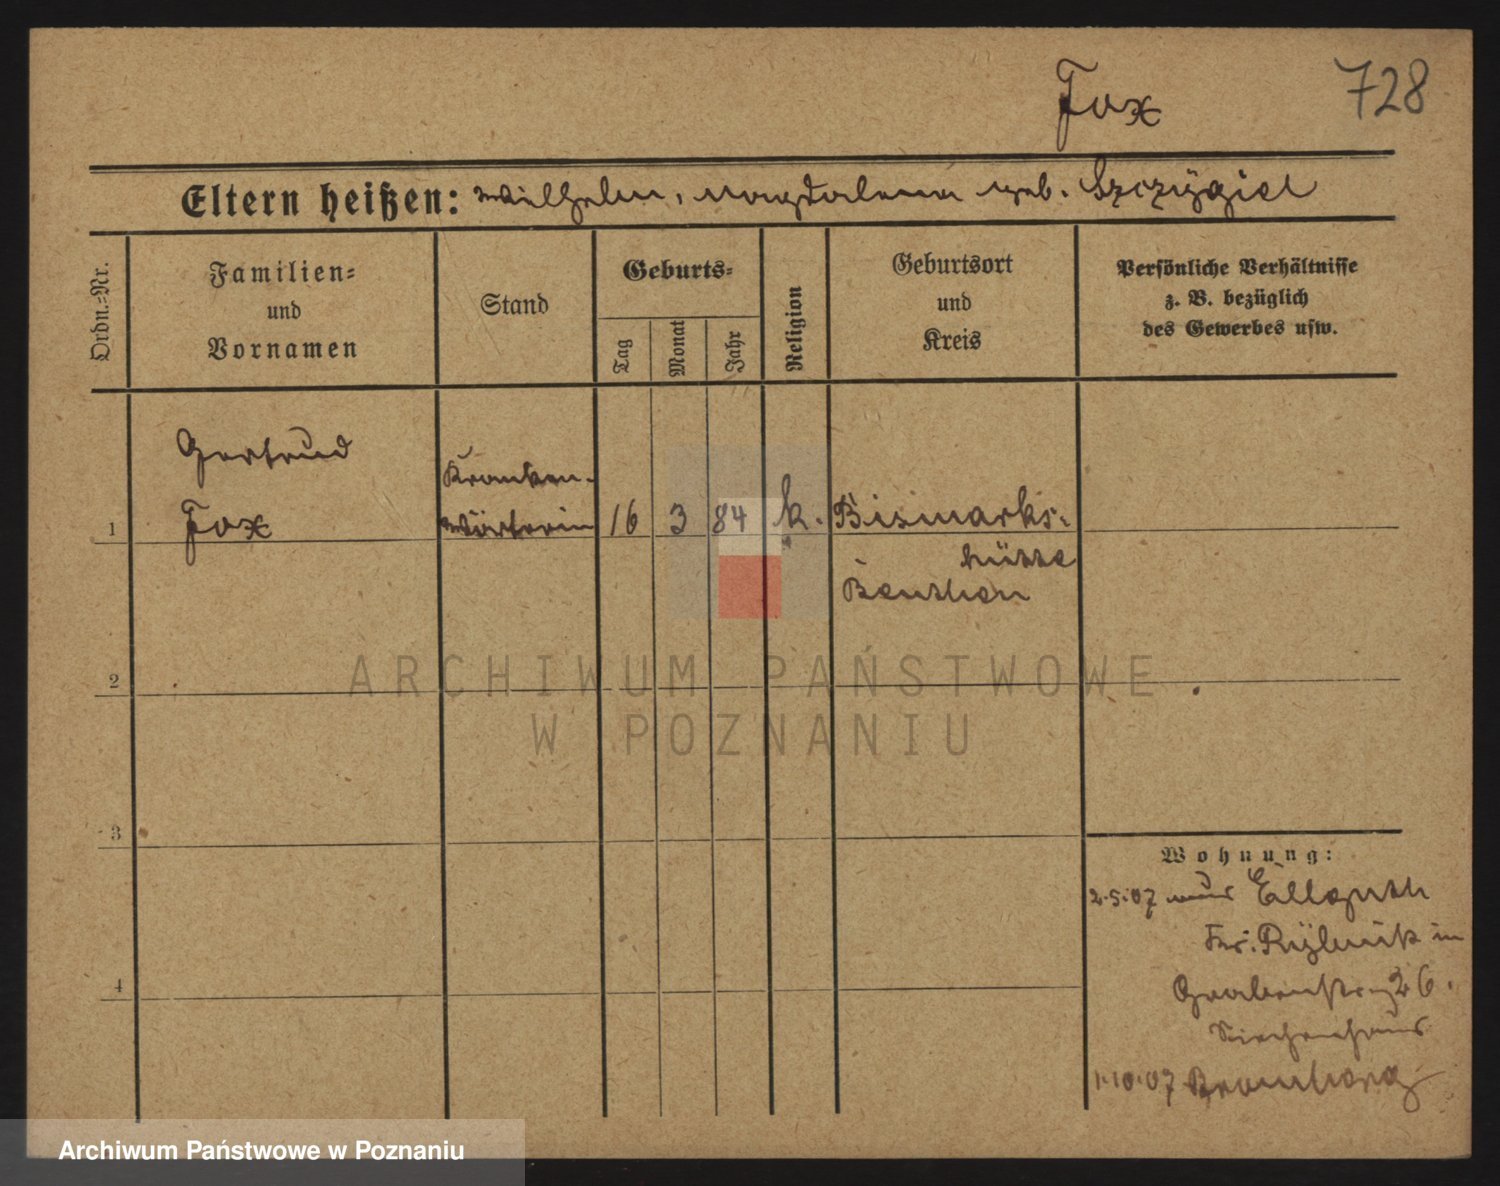 Fox
728
Eltern heißen: Wilhelm, Magdalena geb. Szczÿgiel
Ordn.=Nr.
Familien=
und
Vornamen
Stand
Geburts=
Tag
Monat
Jahr
Religion
Geburtsort
und
Kreis
Persönliche Verhältnisse
z. B. bezüglich
des Gewerbes usw.
Gertrud
Kranken-
1
Fox
wärterin
16
3
84
k.
Bismarks-
hütte
Beuthen
2
3
4
Wohnung:
2.5.07 aus Ellguth
Kr. Rÿbnik in
Grabenstr. 26.
Siechenhaus
1.10.07 Bromberg
ARCHIWUM PAŃSTWOWE
W POZNANIU
Archiwum Państwowe w Poznaniu